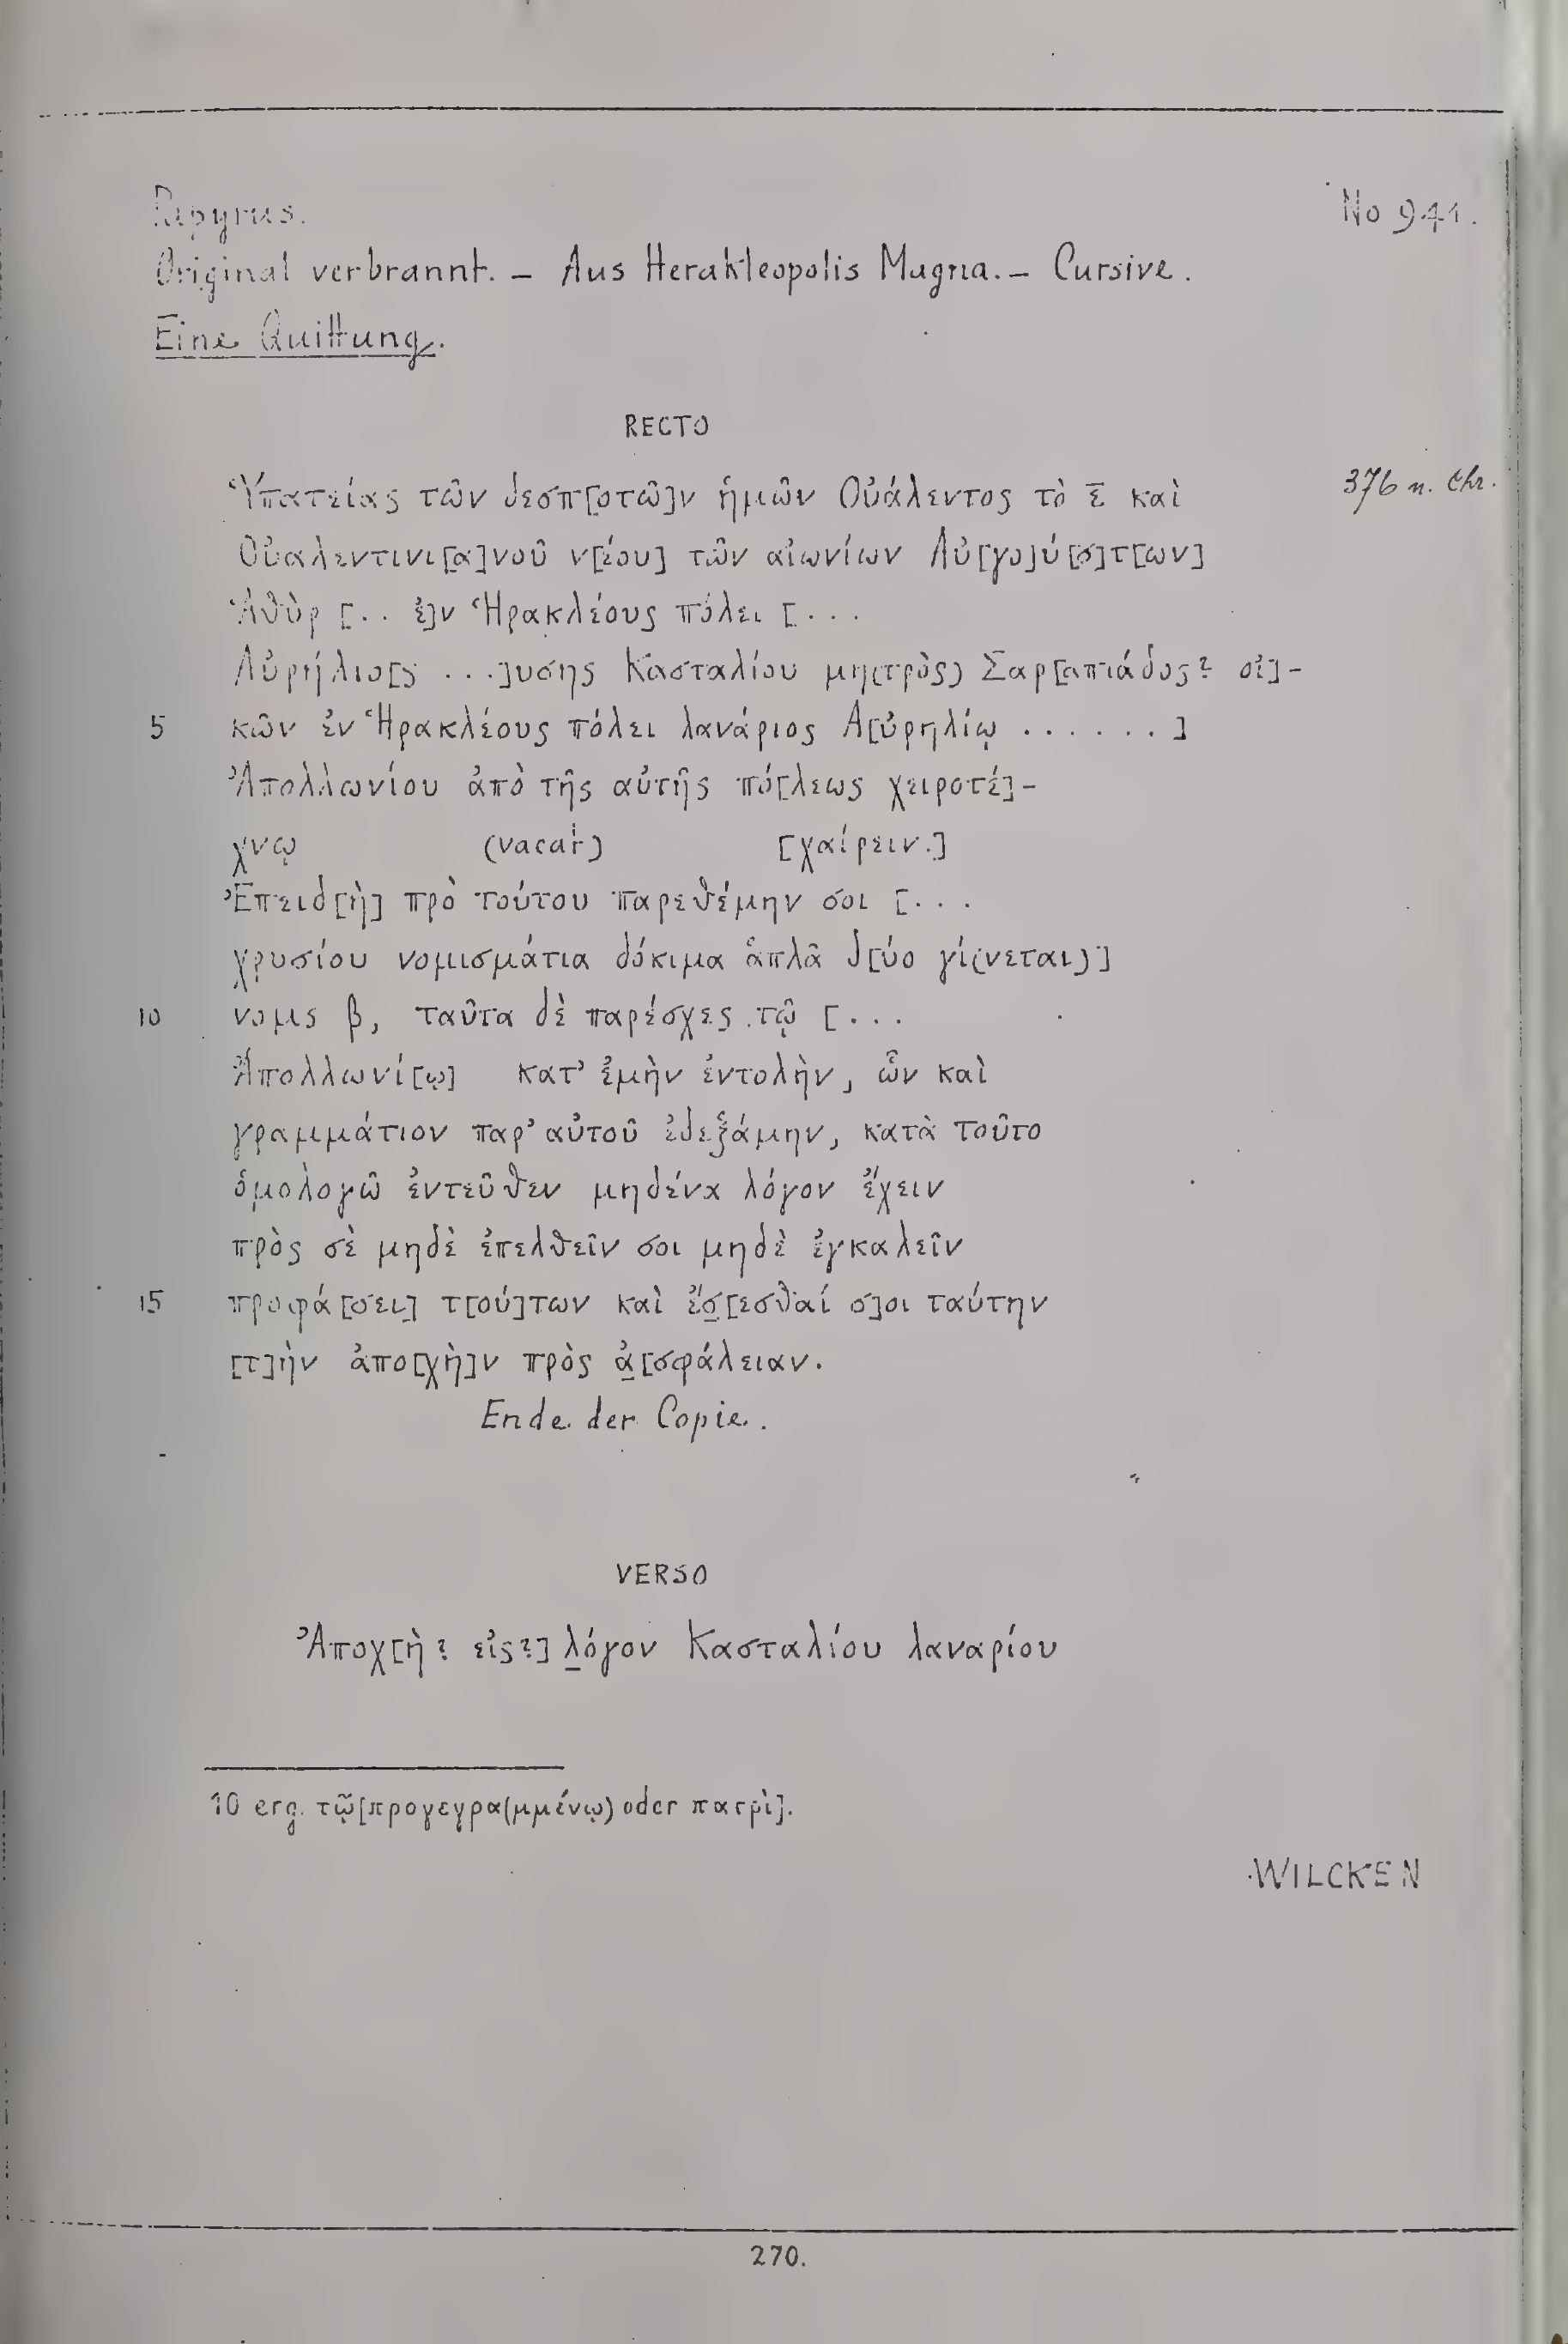 Papyrus.
No 941.
Original verbrannt. – Aus Herakleopolis Magna. – Cursive.
Eine Quittung.
RECTO
Ὑπατείας τῶν δεσπ[οτῶ]ν ἡμῶν Οὐάλεντος τὸ ε̅ καὶ
376 n. Chr.
Οὐαλεντινι[α]νοῦ ν[έου] τῶν αἰωνίων Αὐ[γο]ύ[σ]τ[ων]
Ἁθὺρ [. . ἐ]ν Ἡρακλέους πόλει [. . .
Αὐρήλιο[ς . . .]υσης Κασταλίου μη(τρὸς) Σαρ[απιάδος? οἰ]-
5 κῶν ἐν Ἡρακλέους πόλει λανάριος Α[ὐρηλίῳ . . . . . . ]
Ἀπολλωνίου ἀπὸ τῆς αὐτῆς πό[λεως χειροτέ]-
χνῳ (vacat) [χαίρειν.]
Ἐπειδ[ὴ] πρὸ τούτου παρεθέμην σοι [. . .
χρυσίου νομισμάτια δόκιμα ἁπλᾶ δ[ύο γί(νεται)]
10 νομς β, ταῦτα δὲ παρέσχες τῷ [. . .
Ἀπολλωνί[ῳ] κατ' ἐμὴν ἐντολὴν, ὧν καὶ
γραμμάτιον παρ' αὐτοῦ ἐδεξάμην, κατὰ τοῦτο
ὁμολογῶ ἐντεῦθεν μηδένα λόγον ἔχειν
πρὸς σὲ μηδὲ ἐπελθεῖν σοι μηδὲ ἐγκαλεῖν
15 προφά[σει] τ[ού]των καὶ ἔσ̲[εσθαί σ]οι ταύτην
[τ]ὴν ἀπο[χὴ]ν πρὸς ἀ̲[σφάλειαν.
Ende der Copie.
VERSO
Ἀποχ[ὴ? εἰς?] λ̲όγον Κασταλίου λαναρίου
10 erg. τῷ[προγεγρα(μμένῳ) oder πατρὶ].
WILCKEN
270.